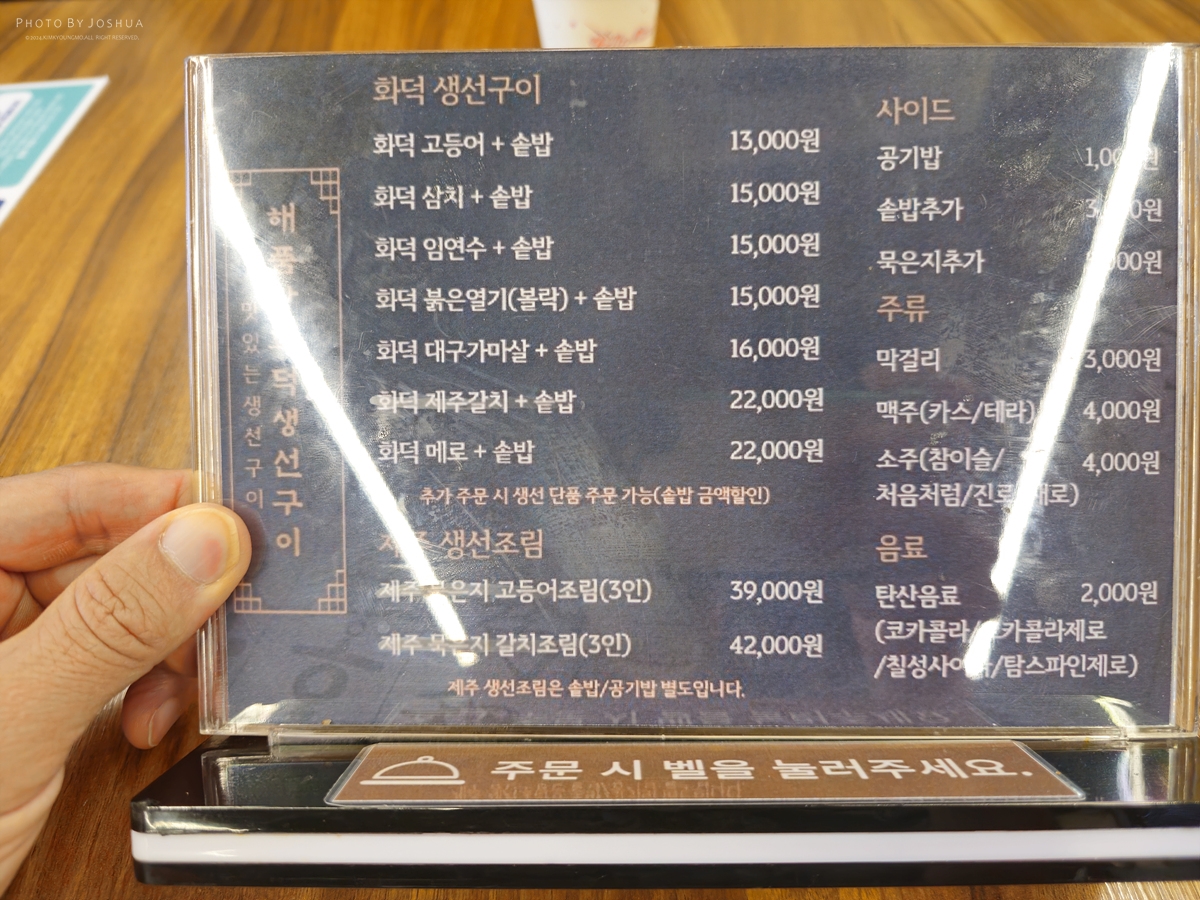 PHOTO BY JOSHUA
화덕 생선구이
화덕 고등어 + 솥밥 13,000원
화덕 삼치 + 솥밥 15,000원
화덕 임연수 + 솥밥 15,000원
화덕 붉은열기(볼락) + 솥밥 15,000원
화덕 대구가마살 + 솥밥 16,000원
화덕 제주갈치 + 솥밥 22,000원
화덕 메로 + 솥밥 22,000원
추가 주문 시 생선 단품 주문 가능(솥밥 금액할인)
제주 생선조림
제주 묵은지 고등어조림(3인) 39,000원
제주 묵은지 갈치조림(3인) 42,000원
제주 생선조림은 솥밥/공기밥 별도입니다.
사이드
공기밥
솥밥추가
묵은지추가
주류
막걸리 3,000원
맥주(카스/테라) 4,000원
소주(참이슬/ 4,000원
처음처럼/진로
음료
탄산음료 2,000원
(코카콜라/코카콜라제로
/칠성사이다/탐스파인제로)
생선구이
맛있는생선구이
주문 시 벨을 눌러주세요.